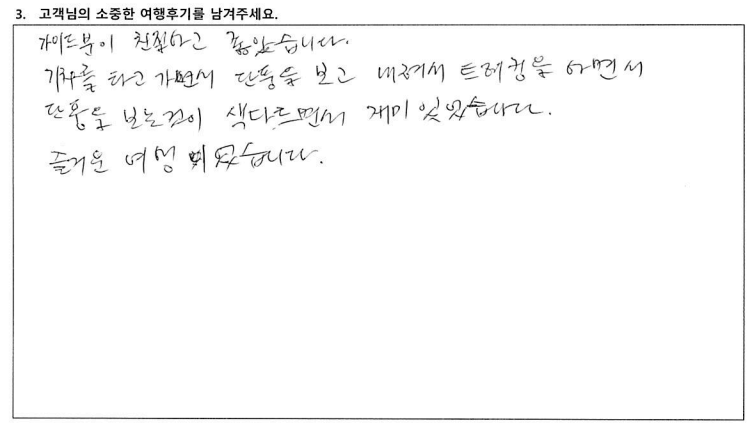 3. 고객님의 소중한 여행후기를 남겨주세요.
가이드분이 친절하고 좋았습니다.
기차를 타고 가면서 단풍을 보고 내려서 트레킹을 하면서
단풍을 보는것이 색다르면서 재미있었습니다.
즐거운 여행이었습니다.